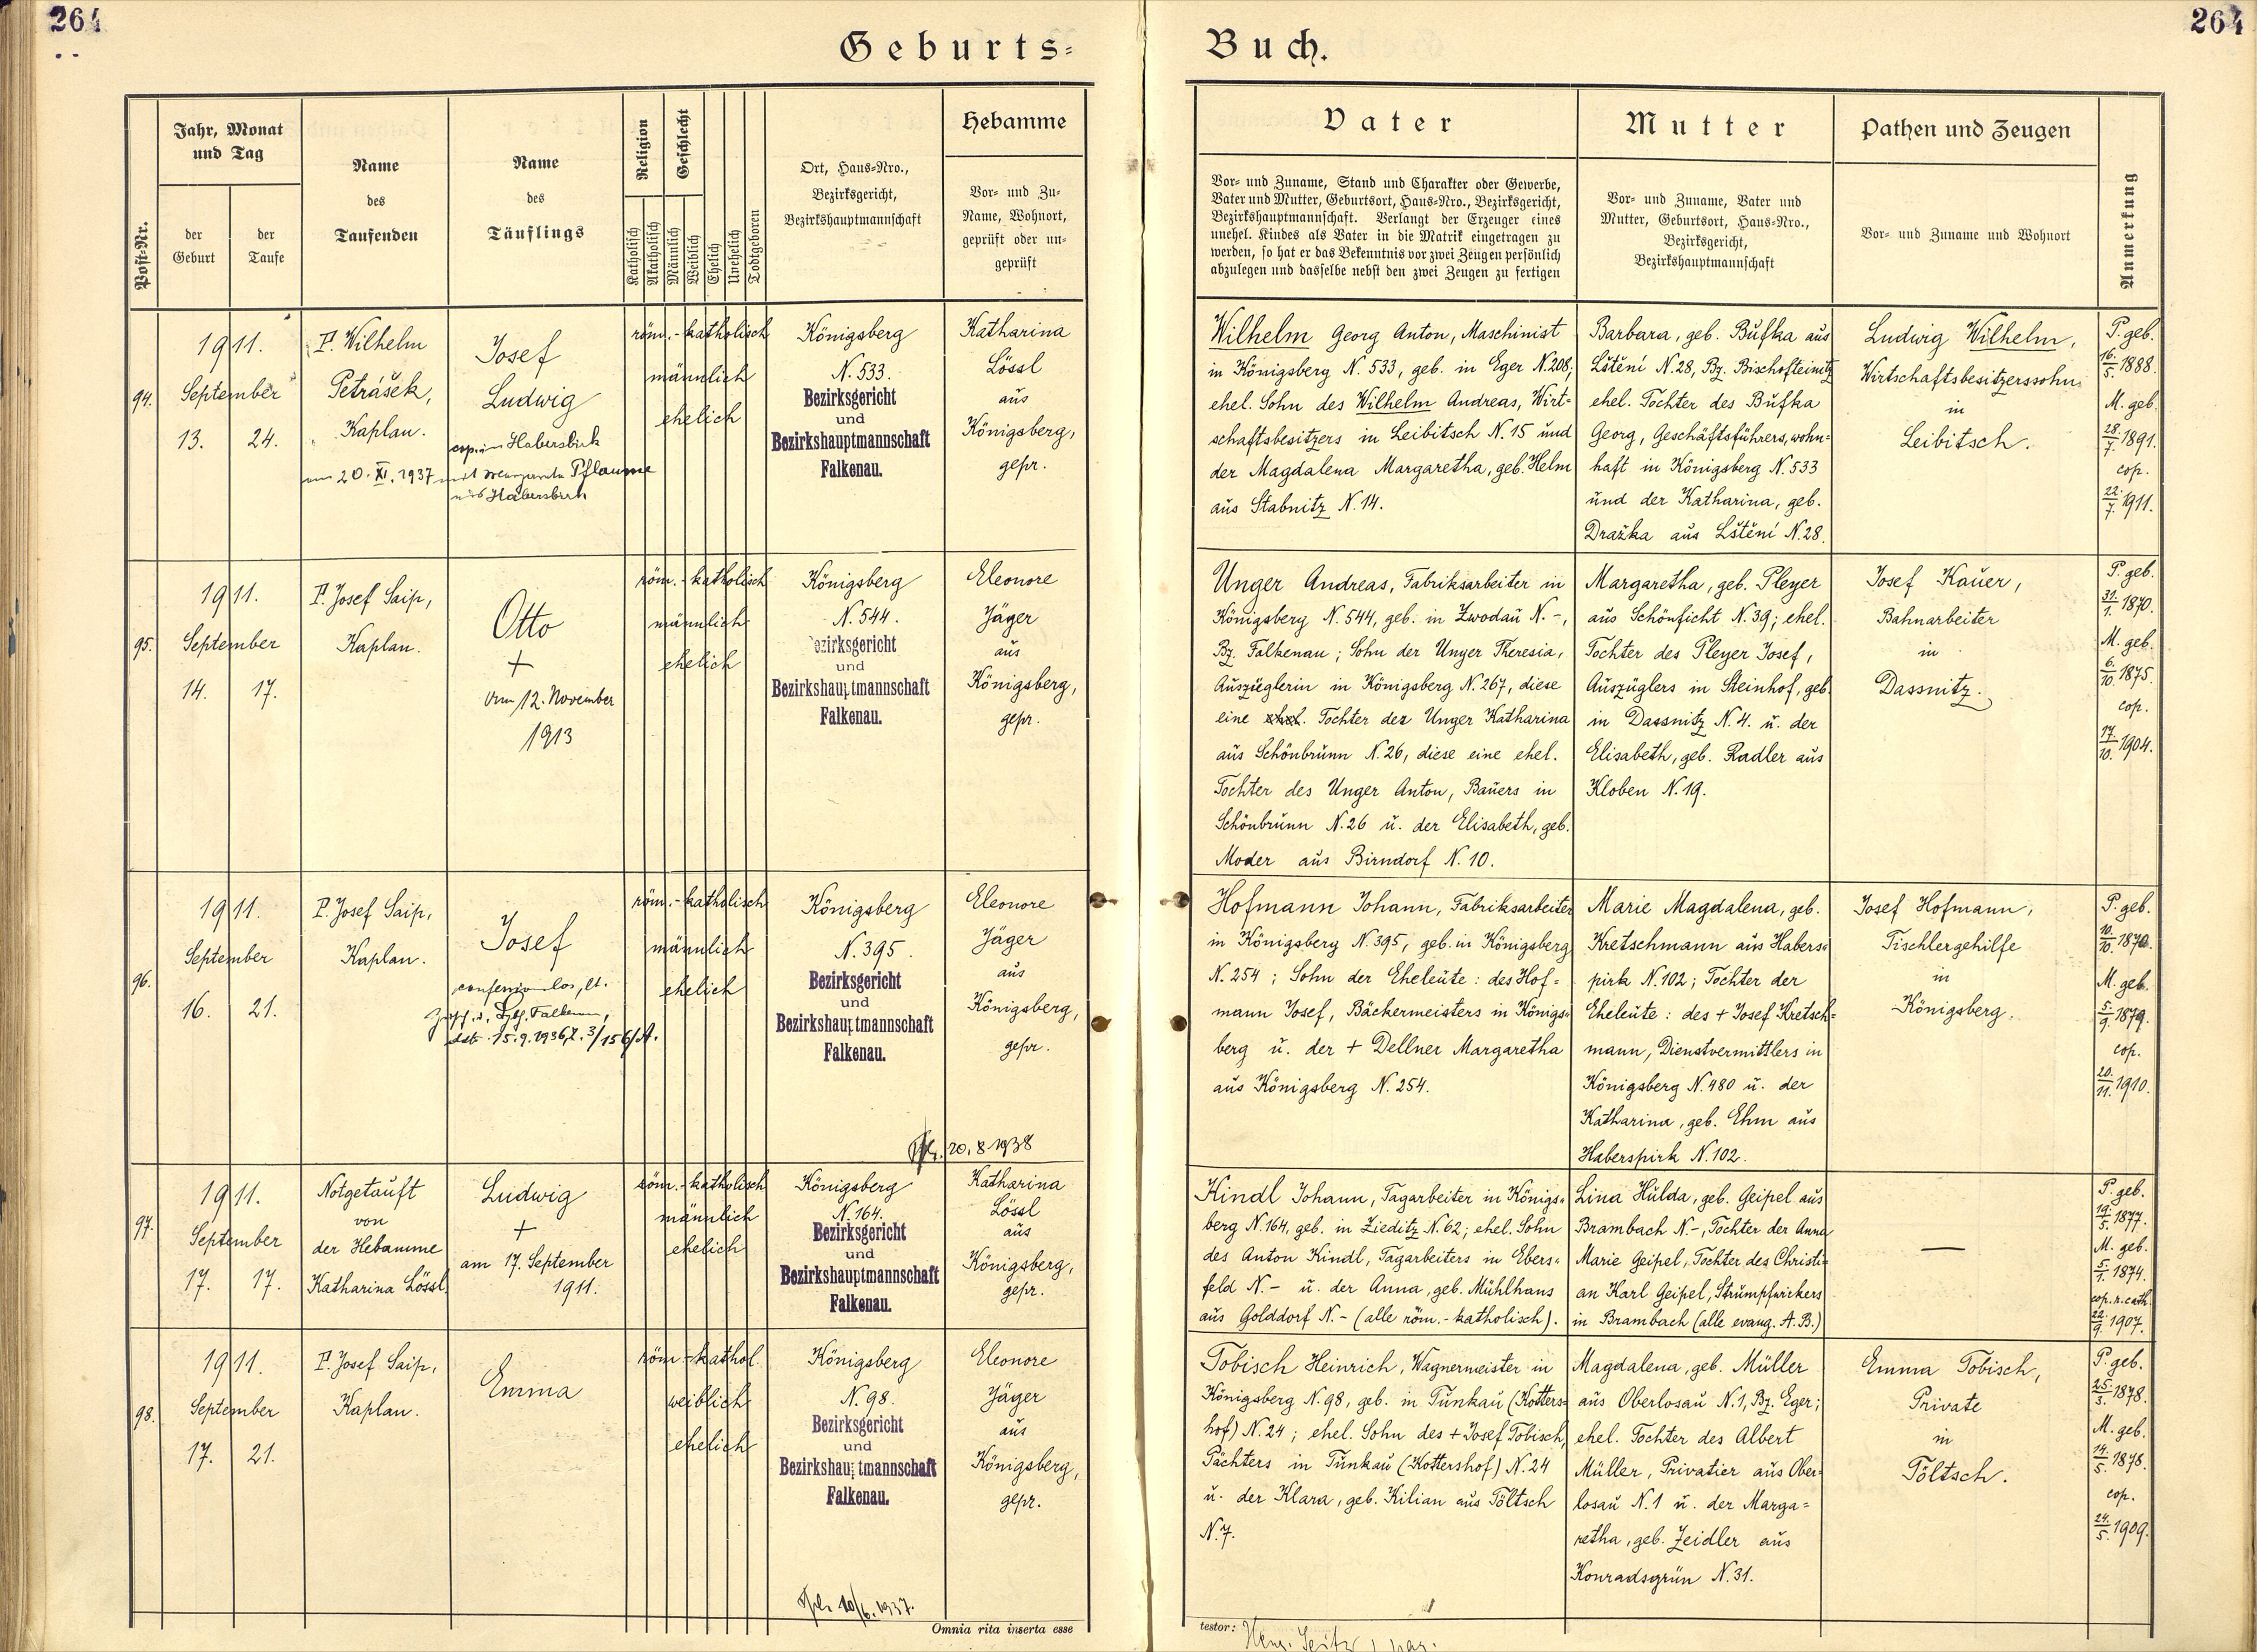 264
264
Geburts-
Buch.
Post-Nr.
Jahr, Monat
und Tag
der
Geburt
der
Taufe
Name
des
Taufenden
Name
des
Täuflings
Religion
Katholisch
Akatholisch
Geschlecht
Männlich
Weiblich
Ehelich
Unehelich
Todtgeboren
Ort, Haus-Nro.,
Bezirksgericht,
Bezirkshauptmannschaft
Hebamme
Vor- und Zu-
Name, Wohnort,
geprüft oder un-
geprüft
Vater
Vor- und Zuname, Stand und Charakter oder Gewerbe,
Vater und Mutter, Geburtsort, Haus-Nro., Bezirksgericht,
Bezirkshauptmannschaft. Verlangt der Erzeuger eines
unehel. Kindes als Vater in die Matrik eingetragen zu
werden, so hat er das Bekenntnis vor zwei Zeugen persönlich
abzulegen und dasselbe nebst den zwei Zeugen zu fertigen
Mutter
Vor- und Zuname, Vater und
Mutter, Geburtsort, Haus-Nro.,
Bezirksgericht,
Bezirkshauptmannschaft
Pathen und Zeugen
Vor- und Zuname und Wohnort
Anmerkung
94.
1911.
September
13. 24.
P. Wilhelm
Petrášek,
Kaplan.
Josef
Ludwig
cop. in Habersbirk
am 20. XI. 1937 mit Margarete Pflaume
aus Habersbirk
röm.-katholisch
männlich
ehelich
Königsberg
N. 533.
Bezirksgericht
und
Bezirkshauptmannschaft
Falkenau.
Katharina
Lössl
aus
Königsberg,
gepr.
Wilhelm Georg Anton, Maschinist
in Königsberg N. 533, geb. in Eger N. 208;
ehel. Sohn des Wilhelm Andreas, Wirt-
schaftsbesitzers in Leibitsch N. 15 und
der Magdalena Margaretha, geb. Helm
aus Stabnitz N. 14.
Barbara, geb. Bufka aus
Lštění N. 28, Bz. Bischofteinitz
ehel. Tochter des Bufka
Georg, Geschäftsführers, wohn-
haft in Königsberg N. 533
und der Katharina, geb.
Dražka aus Lštění N. 28.
Ludwig Wilhelm,
Wirtschaftsbesitzerssohn
in
Leibitsch.
P. geb.
16./5. 1888.
M. geb.
28./7. 1891.
cop.
22./7. 1911.
95.
1911.
September
14. 17.
P. Josef Saip,
Kaplan.
Otto
+
am 12. November
1913
röm.-katholisch
männlich
ehelich
Königsberg
N. 544.
Bezirksgericht
und
Bezirkshauptmannschaft
Falkenau.
Eleonore
Jäger
aus
Königsberg,
gepr.
Unger Andreas, Fabriksarbeiter in
Königsberg N. 544, geb. in Zwodau N. -,
Bz. Falkenau; Sohn der Unger Theresia,
Auszüglerin in Königsberg N. 267, diese
eine ehel. Tochter der Unger Katharina
aus Schönbrunn N. 26, diese eine ehel.
Tochter des Unger Anton, Bauers in
Schönbrunn N. 26 u. der Elisabeth, geb.
Moder aus Birndorf N. 10.
Margaretha, geb. Pleyer
aus Schönficht N. 39; ehel.
Tochter des Pleyer Josef,
Auszüglers in Steinhof, geb.
in Dassnitz N. 4. u. der
Elisabeth, geb. Radler aus
Kloben N. 19.
Josef Kauer,
Bahnarbeiter
in
Dassnitz.
P. geb.
31./1. 1870.
M. geb.
6./10. 1875.
cop.
17./10. 1904.
96.
1911.
September
16. 21.
P. Josef Saip,
Kaplan.
Josef
confessionslos, lt.
Zuschr. d. Bzh. Falkenau,
ddto. 15.9.1936, Z. 3/156/A.
röm.-katholisch
männlich
ehelich
Königsberg
N. 395.
Bezirksgericht
und
Bezirkshauptmannschaft
Falkenau.
20. 8. 1938
Eleonore
Jäger
aus
Königsberg,
gepr.
Hofmann Johann, Fabriksarbeiter
in Königsberg N. 395, geb. in Königsberg
N. 254; Sohn der Eheleute: des Hof-
mann Josef, Bäckermeisters in Königs-
berg u. der + Dellner Margaretha
aus Königsberg N. 254.
Marie Magdalena, geb.
Kretschmann aus Habers-
pirk N. 102; Tochter der
Eheleute: des + Josef Kretsch-
mann, Dienstvermittlers in
Königsberg N. 480 u. der
Katharina, geb. Ehm aus
Haberspirk N. 102.
Josef Hofmann,
Tischlergehilfe
in
Königsberg.
P. geb.
10./10. 1870.
M. geb.
5./9. 1879.
cop.
20./11. 1910.
97.
1911.
September
17. 17.
Notgetauft
von
der Hebamme
Katharina Lössl.
Ludwig
+
am 17. September
1911.
röm.-katholisch
männlich
ehelich
Königsberg
N. 164.
Bezirksgericht
und
Bezirkshauptmannschaft
Falkenau.
Katharina
Lössl
aus
Königsberg,
gepr.
Kindl Johann, Tagarbeiter in Königs-
berg N. 164, geb. in Zieditz N. 62; ehel. Sohn
des Anton Kindl, Tagarbeiters in Ebers-
feld N. - u. der Anna, geb. Mühlhans
aus Golddorf N. - (alle röm.-katholisch).
Lina Hulda, geb. Geipel aus
Brambach N. -, Tochter der Anna
Marie Geipel, Tochter des Christi-
an Karl Geipel, Strumpfwirkers
in Brambach (alle evang. A. B.)
—
P. geb.
19./5. 1877.
M. geb.
5./1. 1874.
cop. r. cath.
22./9. 1907.
98.
1911.
September
17. 21.
P. Josef Saip,
Kaplan.
Emma
röm.-kathol.
weiblich
ehelich
Königsberg
N. 98.
Bezirksgericht
und
Bezirkshauptmannschaft
Falkenau.
10/6. 1937.
Eleonore
Jäger
aus
Königsberg,
gepr.
Tobisch Heinrich, Wagnermeister in
Königsberg N. 98, geb. in Tunkau (Kotters-
hof) N. 24; ehel. Sohn des + Josef Tobisch,
Pächters in Tunkau (Kottershof) N. 24
u. der Klara, geb. Kilian aus Töltsch
N. 7.
Magdalena, geb. Müller
aus Oberlosau N. 1, Bz. Eger;
ehel. Tochter des Albert
Müller, Privatier aus Ober-
losau N. 1 u. der Marga-
retha, geb. Zeidler aus
Konradsgrün N. 31.
Emma Tobisch,
Private
in
Töltsch.
P. geb.
25./3. 1878.
M. geb.
14./5. 1878.
cop.
24./5. 1909.
Omnia rita inserta esse
testor: